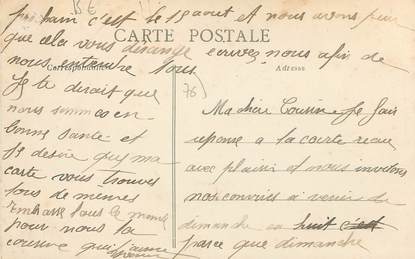 prochain c'est le 15 aout et nous avons peur
que cela vous derange ecrivez nous afin de
nous entendre tous
CARTE POSTALE
Correspondance
Adresse
76
Ma chere Cousine Je fais
reponse a ta carte recue
avec plaisir et nous invitons
nos convives a venir de
dimanche en huit c'est
parce que dimanche
Je te dirait que
nous sommes en
bonne sante et
Je desire que ma
carte vous trouve
tous de memes
embrasse tous le monde
pour nous ta
cousine qui t'aime